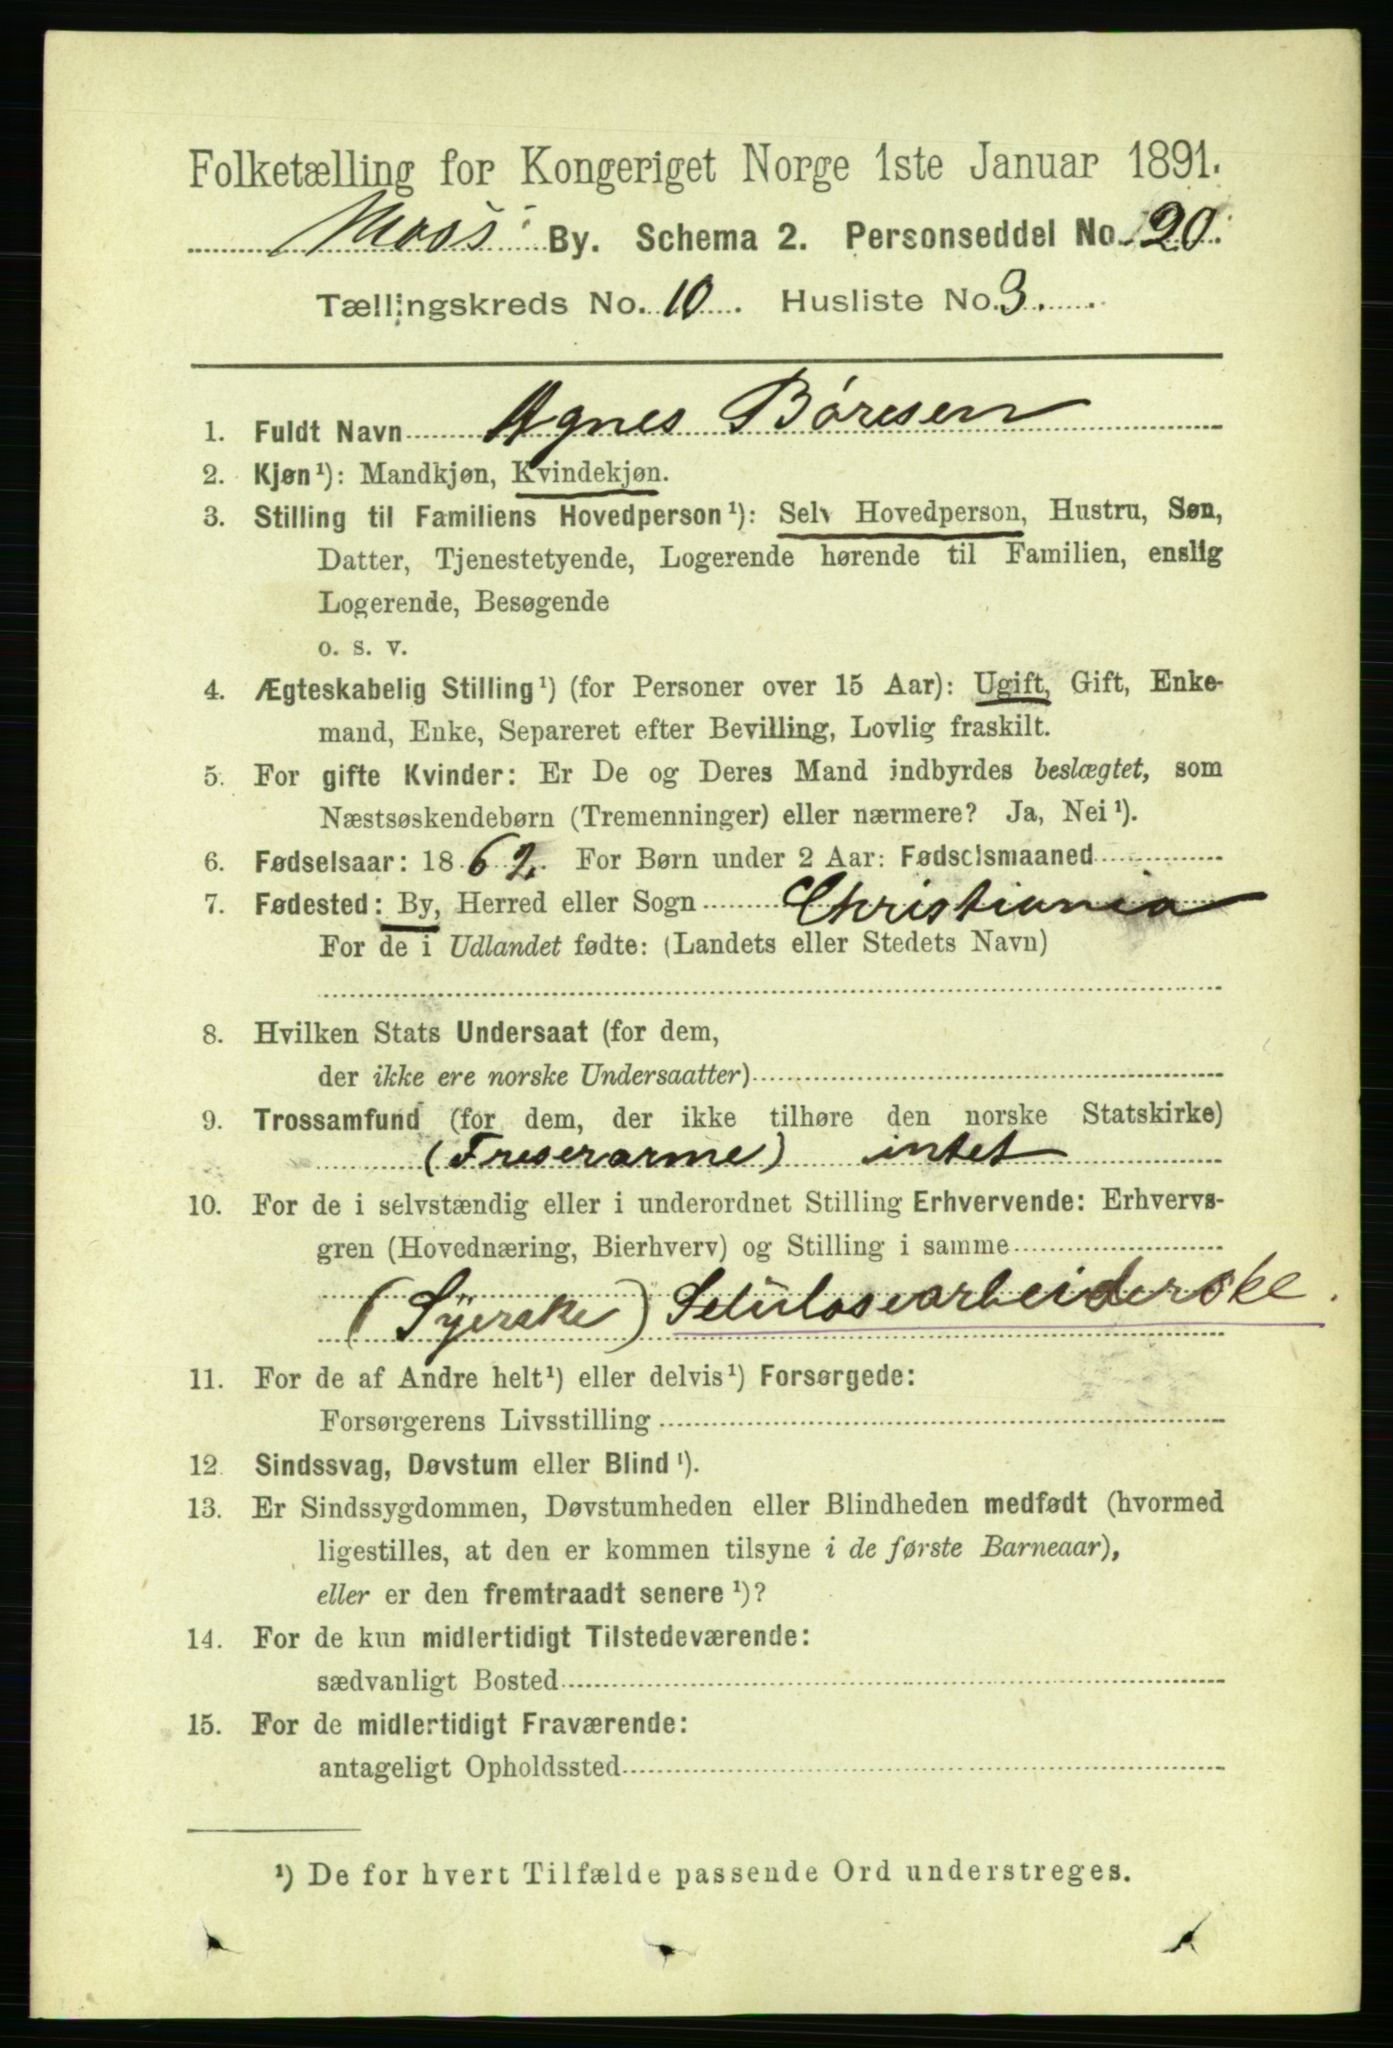 Folketælling for Kongeriget Norge 1ste Januar 1891.
Moss By. Schema 2. Personseddel No. 20.
Tællingskreds No. 10. Husliste No. 3.
1. Fuldt Navn Agnes Børesen
2. Kjøn¹): Mandkjøn, Kvindekjøn.
3. Stilling til Familiens Hovedperson¹): Selv Hovedperson, Hustru, Søn,
Datter, Tjenestetyende, Logerende hørende til Familien, enslig
Logerende, Besøgende
o. s. v.
4. Ægteskabelig Stilling¹) (for Personer over 15 Aar): Ugift, Gift, Enke-
mand, Enke, Separeret efter Bevilling, Lovlig fraskilt.
5. For gifte Kvinder: Er De og Deres Mand indbyrdes beslægtet, som
Næstsøskendebørn (Tremenninger) eller nærmere? Ja, Nei¹).
6. Fødselsaar: 1862. For Børn under 2 Aar: Fødselsmaaned
7. Fødested: By, Herred eller Sogn Christiania
For de i Udlandet fødte: (Landets eller Stedets Navn)
8. Hvilken Stats Undersaat (for dem,
der ikke ere norske Undersaatter)
9. Trossamfund (for dem, der ikke tilhøre den norske Statskirke)
(Freserarme) intet
10. For de i selvstændig eller i underordnet Stilling Erhvervende: Erhvervs-
gren (Hovednæring, Bierhverv) og Stilling i samme
(Syerske) Selulosearbeiderske.
11. For de af Andre helt¹) eller delvis¹) Forsørgede:
Forsørgerens Livsstilling
12. Sindssvag, Døvstum eller Blind¹).
13. Er Sindssygdommen, Døvstumheden eller Blindheden medfødt (hvormed
ligestilles, at den er kommen tilsyne i de første Barneaar),
eller er den fremtraadt senere¹)?
14. For de kun midlertidigt Tilstedeværende:
sædvanligt Bosted
15. For de midlertidigt Fraværende:
antageligt Opholdssted
¹) De for hvert Tilfælde passende Ord understreges.